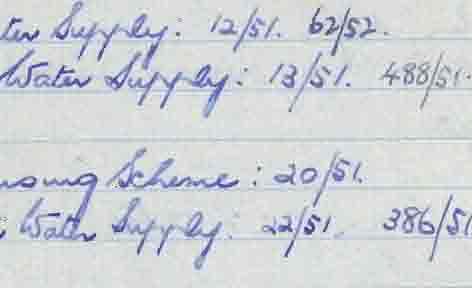 ter Supply: 12/51. 62/52.
Water Supply: 13/51. 488/51.
ousing Scheme: 20/51.
Water Supply: 22/51. 386/51